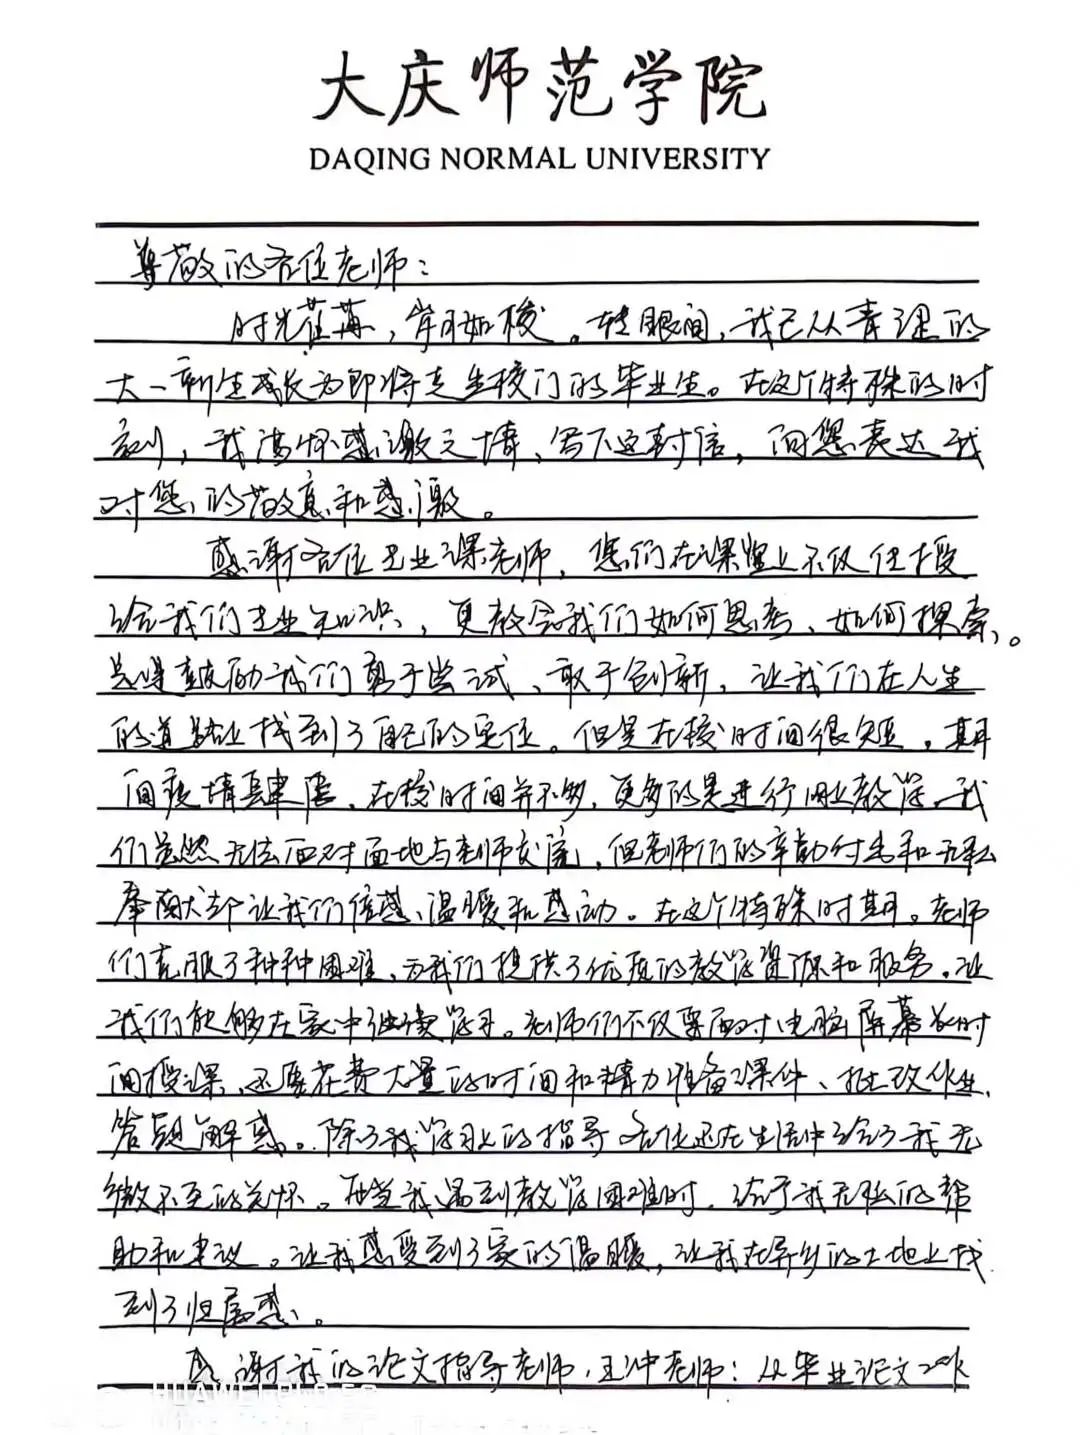 大庆师范学院
DAQING NORMAL UNIVERSITY
尊敬的各位老师：
时光荏苒，岁月如梭。转眼间，我已从青涩的
大一新生成长为即将走出校门的毕业生。在这个特殊的时
刻，我满怀感激之情，写下这封信，向您表达我
对您的敬意和感激。
感谢各位专业课老师，您们在课堂上不仅传授
给我们专业知识，更教会我们如何思考、如何探索。
总是鼓励我们勇于尝试、敢于创新，让我们在人生
的道路上找到了自己的定位。但是在校时间很短，期
间疫情肆虐，在校时间并不多，更多的是进行网上教学，我
们虽然无法面对面地与老师交流，但老师们的辛勤付出和无私
奉献却让我们倍感温暖和感动。在这个特殊时期。老师
们克服了种种困难，为我们提供了优质的教学资源和服务。让
我们能够在家中继续学习。老师们不仅要面对电脑屏幕长时
间授课，还要花费大量的时间和精力准备课件、批改作业、
答疑解惑。除了我学习上的指导，各位还在生活中给了我无
微不至的关怀。每当我遇到教学困难时，给予我无私的帮
助和建议。让我感受到了家的温暖，让我在异乡的土地上找
到了归属感。
感谢我的论文指导老师，王冲老师：从毕业论文
HUAWEI